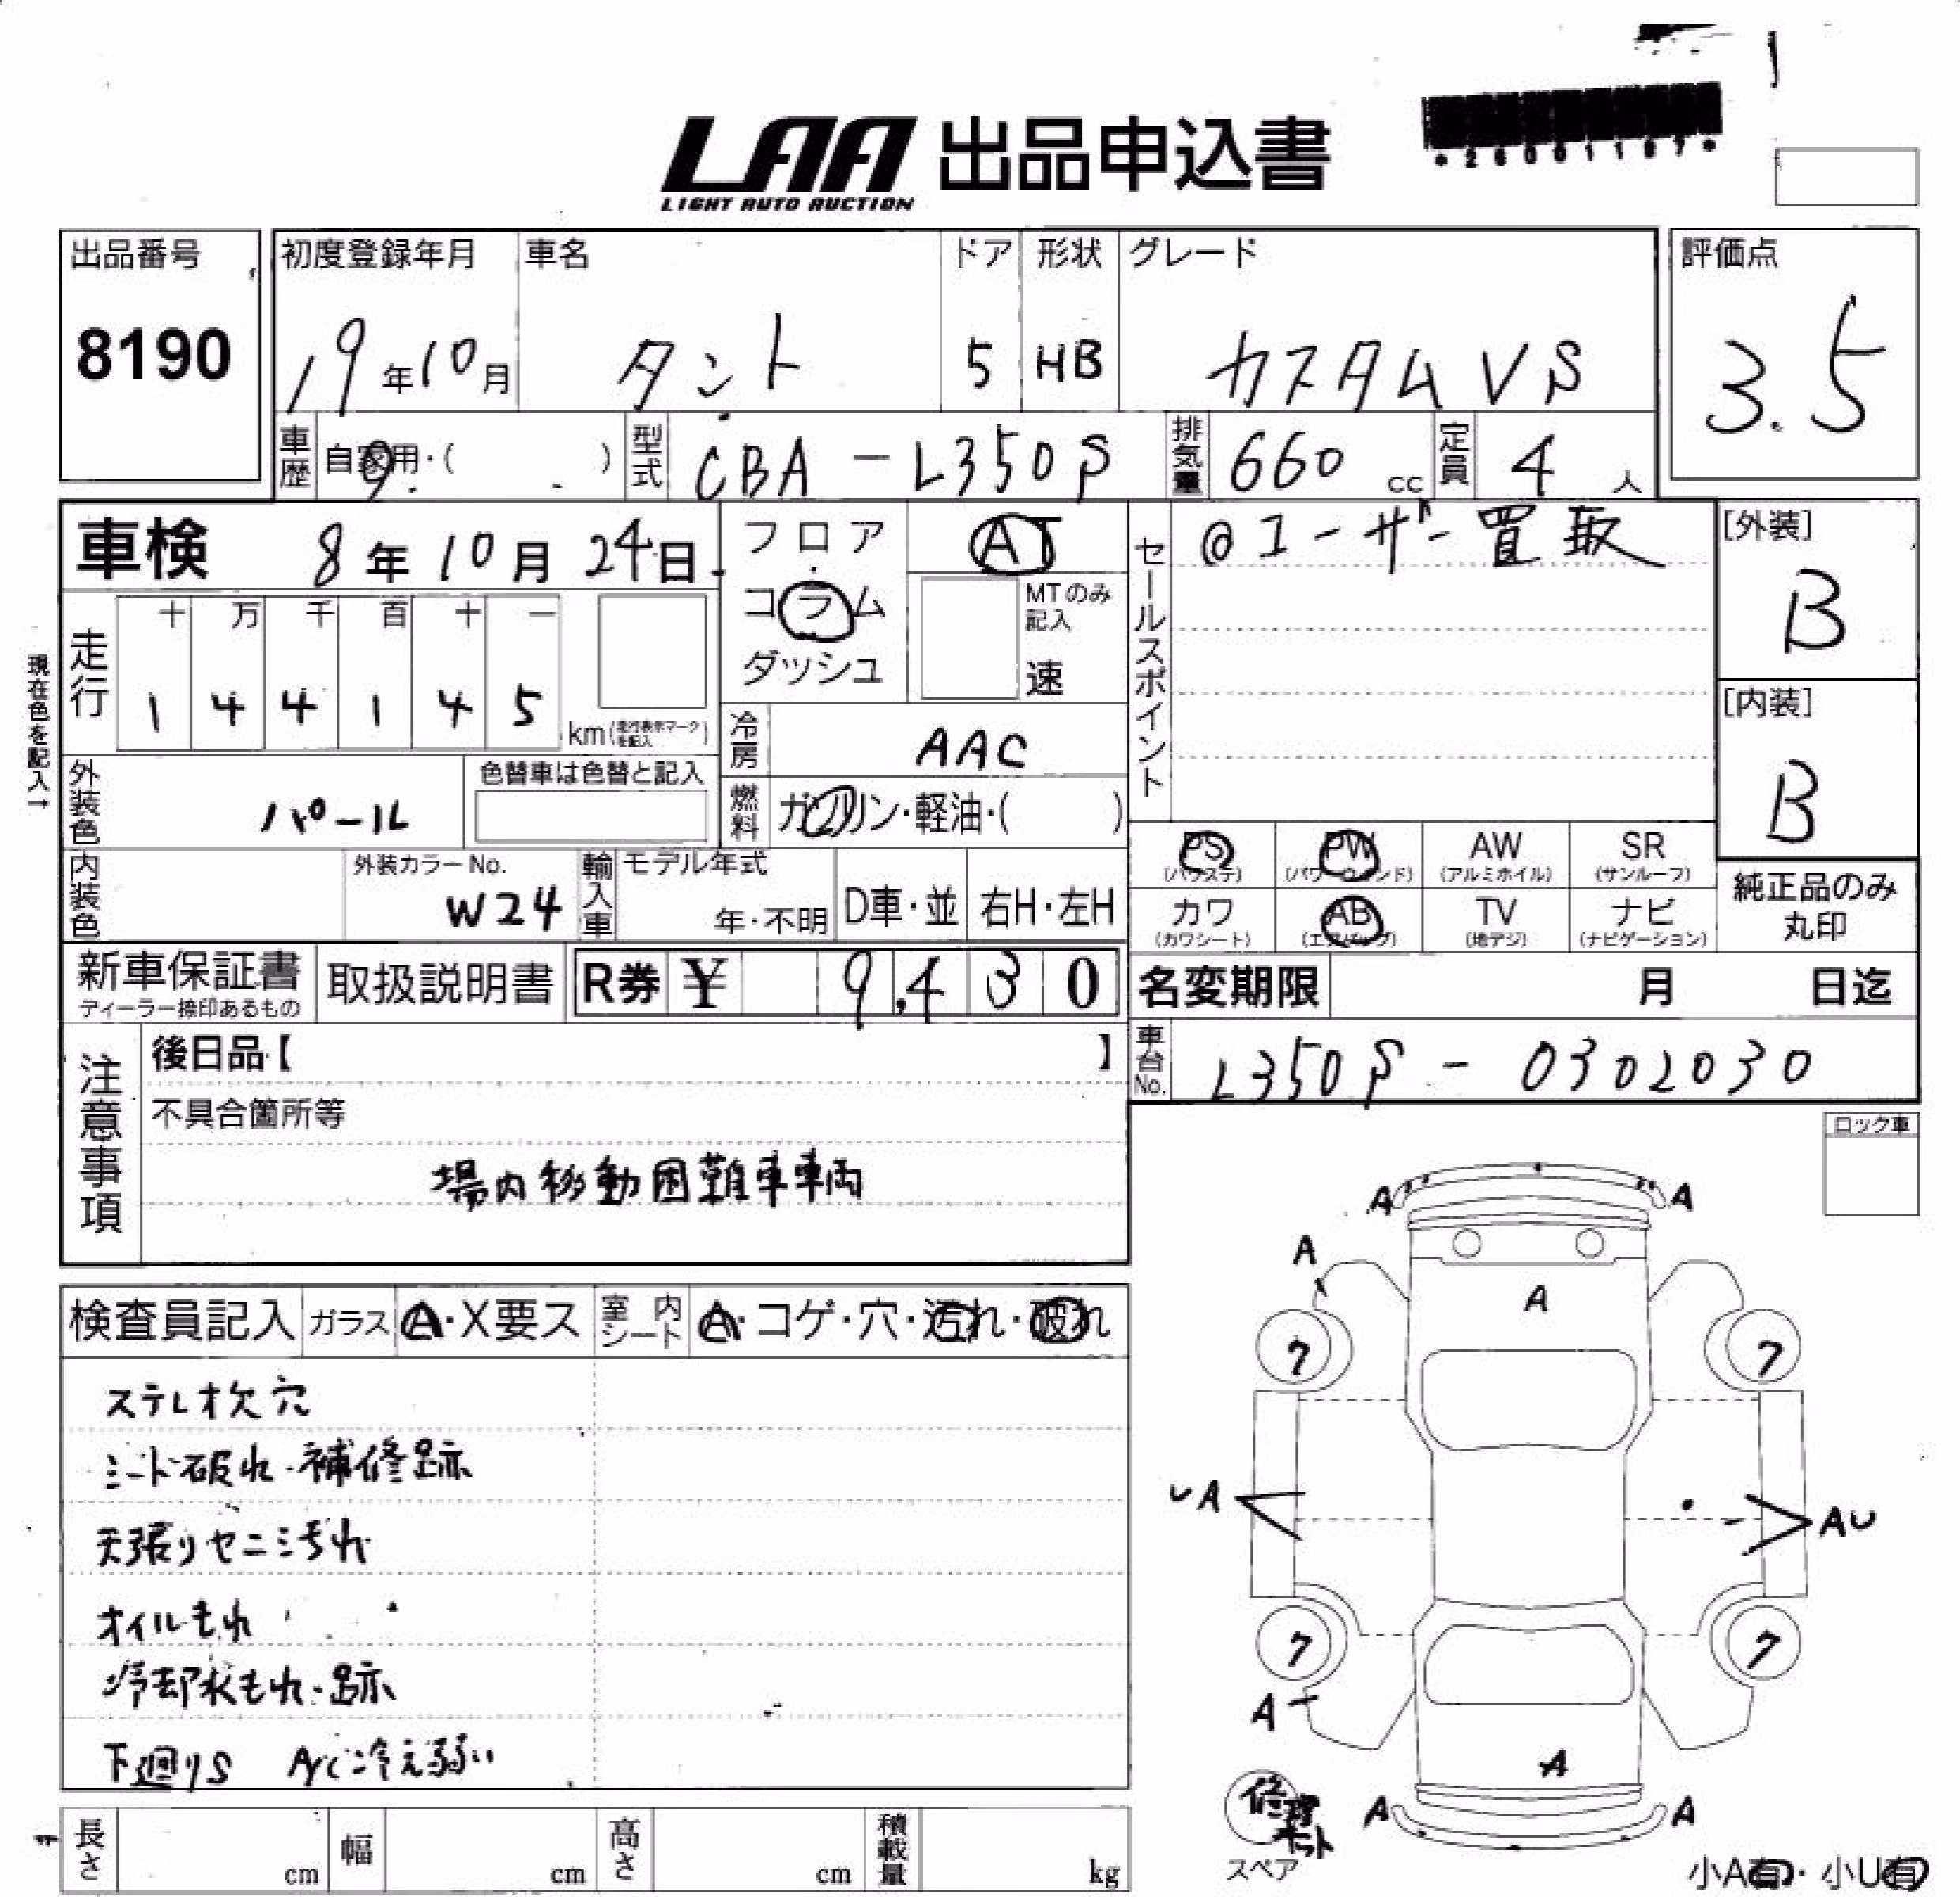 LAA 出品申込書
LIGHT AUTO AUCTION
*26001107*
出品番号
8190
初度登録年月 車名 ドア 形状 グレード
19年10月 タント 5 HB カスタムVS
評価点
3.5
車歴 自家用・( ) 型式 CBA-L350S 排気量 660 cc 定員 4人
車検 8年10月24日
フロア
コラム
ダッシュ
AT
MTのみ記入
速
セールスポイント
@ユーザー買取
[外装]
B
[内装]
B
現在色を記入→
走行
十 万 千 百 十 一
1 4 4 1 4 5
km(走行表示マークを記入)
冷房 AAC
燃料 ガソリン・軽油・( )
外装色 パール
色替車は色替と記入
内装色
外装カラーNo.
W24
輸入車
モデル年式
年・不明
D車・並 右H・左H
PS PW AW SR
(パワステ) (パワーウィンド) (アルミホイル) (サンルーフ)
カワ AB TV ナビ
(カワシート) (エアバッグ) (地デジ) (ナビゲーション)
純正品のみ
丸印
新車保証書
ディーラー捺印あるもの
取扱説明書
R券 ¥ 9,430
名変期限 月 日迄
車台No. L350S-0302030
注意事項
後日品【 】
不具合箇所等
場内移動困難車車両
ロック車
検査員記入 ガラス A・X要ス 室内シート A・コゲ・穴・汚れ・破れ
ステレオ欠穴
シート破れ・補修跡
天張りヤニシ汚れ
オイルもれ
冷却水もれ・跡
下廻りS A/C冷え弱い
A A
A
A
7 7
UA AU
7 7
A
A
A A
修理キット
スペア
小A有・小U有
長さ cm 幅 cm 高さ cm 積載量 kg